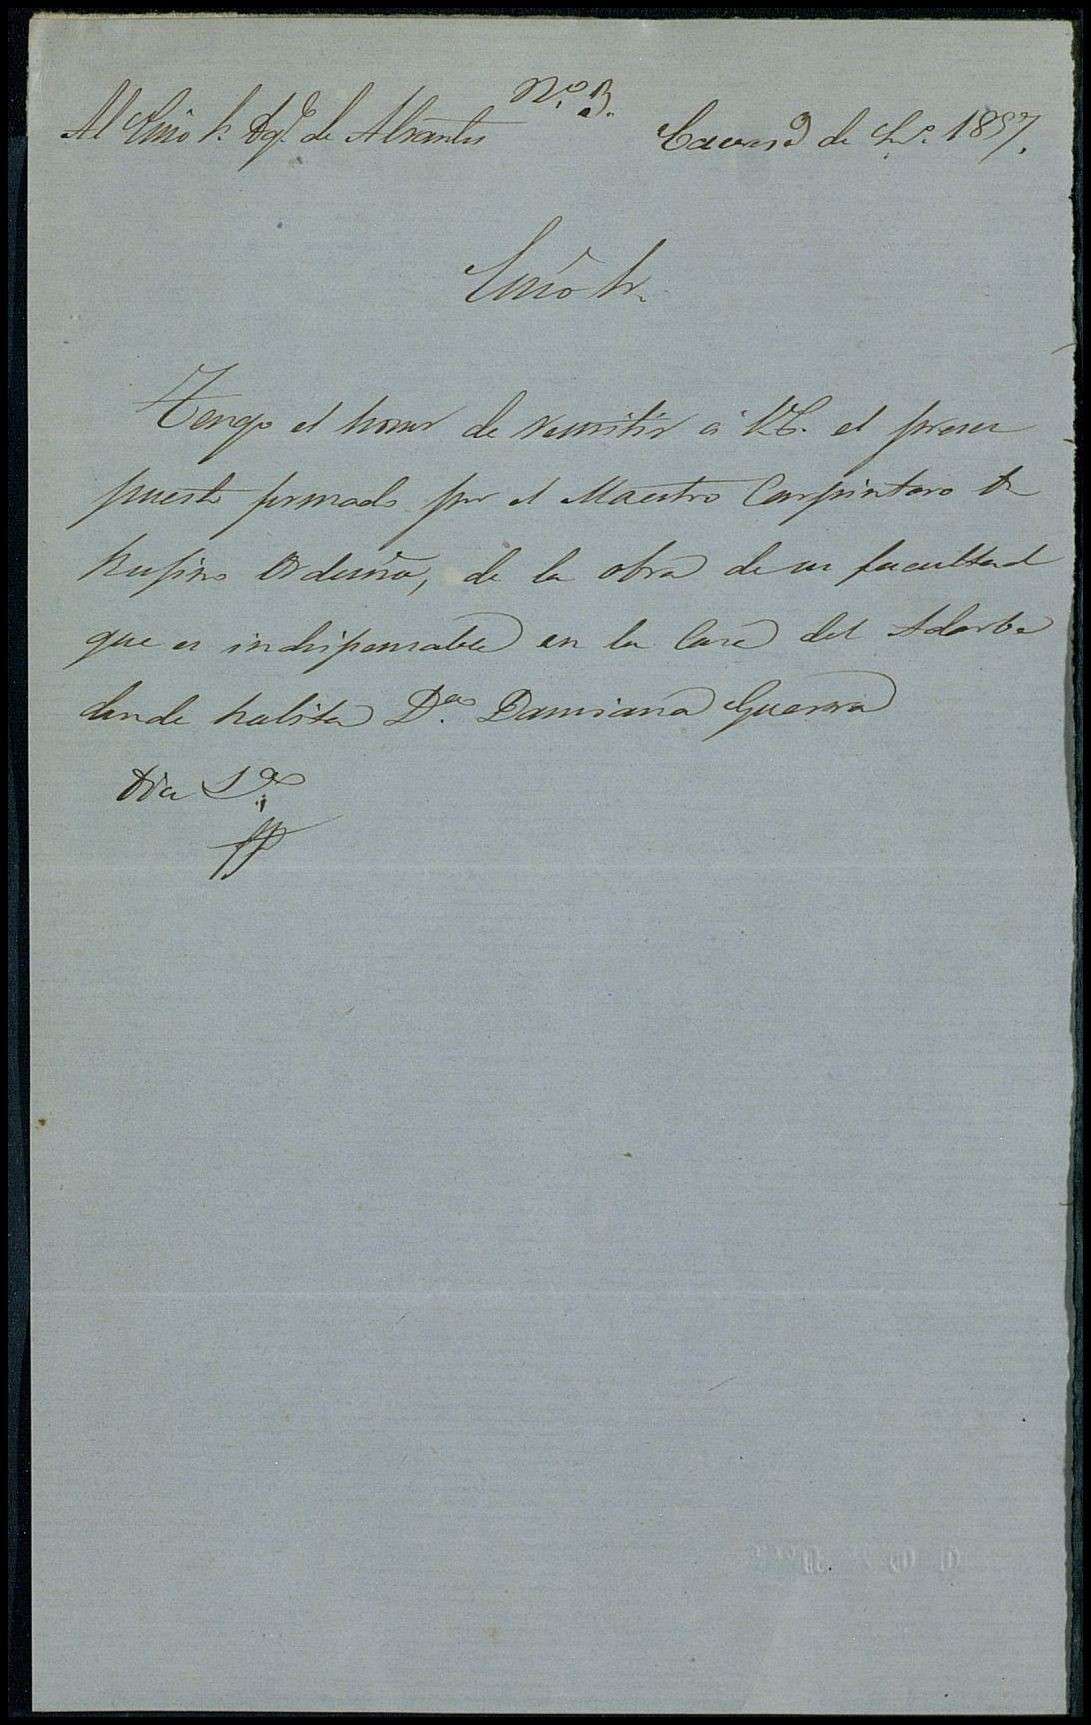 Nº. 3.
Al Exmo Sr. Dqe. de Abrantes
Caceres 9 de 1857.
Exmo Sr.
Tengo el honor de remitir á V.E. el presu
puesto formado por el Maestro Carpintero Dn
Rufino Orduña, de la obra de su facultad
que es indispensable en la Casa del Adarbe
donde habita Dª. Damiana Guerra